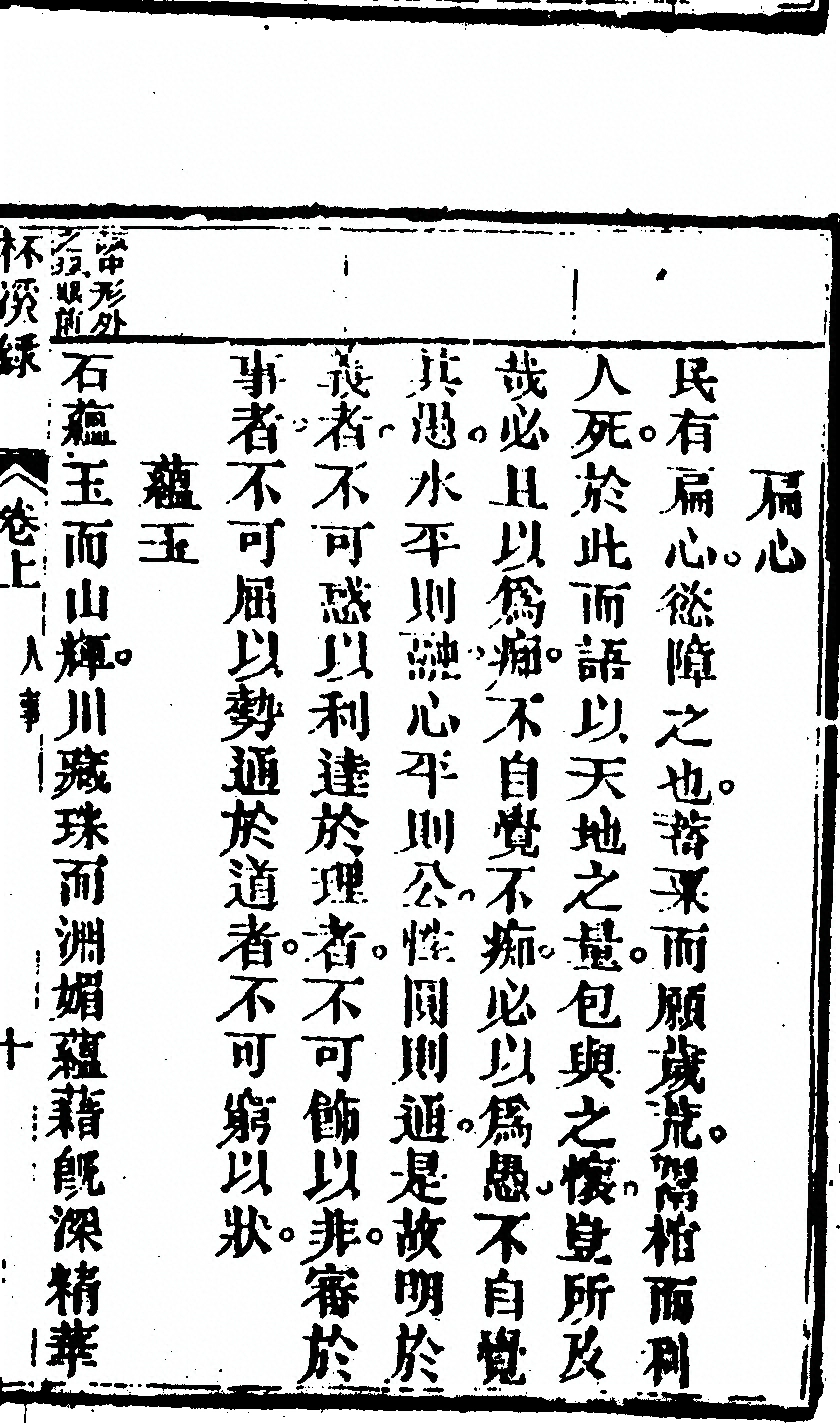 扁心
民有扁心慾障之也蓄粟而願歲荒鬻棺而利
人死於此而語以天地之量包與之懷豈所及
哉必且以爲癡不自覺不痴必以爲愚不自覺
其愚水平則融心平則公性圓則通是故明於
義者不可惑以利達於理者不可飾以非審於
事者不可屈以勢通於道者不可窮以狀
蘊玉
石蘊玉而山輝川藏珠而淵媚蘊藉旣深精華
中形外
之
眼前
林溪錄
卷上
人事
十